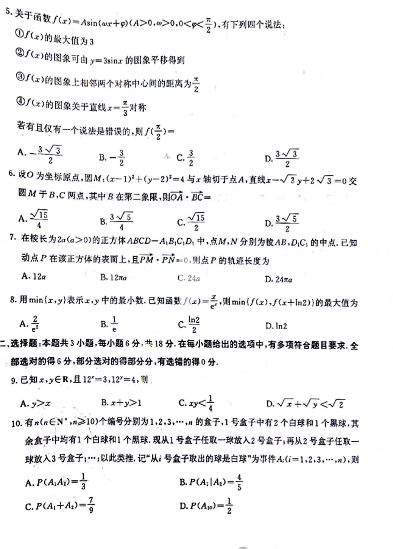 5. 关于函数 f(x)=Asin(ωx+φ)(A>0,ω>0,0<φ<π/2),有下列四个说法:
①f(x)的最大值为3
②f(x)的图象可由 y=3sinx 的图象平移得到
③f(x)的图象上相邻两个对称中心间的距离为π/2
④f(x)的图象关于直线 x=π/3对称
若有且仅有一个说法是错误的,则 f(π/2)=
A. -3√3/2 B. -3/2 C. 3/2 D. 3√3/2
6. 设O 为坐标原点,圆M:(x-1)²+(y-2)²=4与x轴切于点A,直线x-√2y+2√3=0交
圆 M 于 B,C 两点,其中 B 在第二象限,则OA·BC=
A. √15/4 B. 3√5/4 C. √15/2 D. 3√5/2
7. 在棱长为2a(a>0)的正方体 ABCD-A₁B₁C₁D₁ 中,点M,N 分别为棱AB,D₁C₁ 的中点.已知
动点 P 在该正方体的表面上,且PM·PN=0,则点 P 的轨迹长度为
A. 12a B. 12πa C. 24a D. 24πa
8. 用 min{x,y}表示x,y 中的最小数.已知函数 f(x)=x/eˣ,则min{f(x),f(x+ln2)}的最大值为
A. 2/e² B. 1/e C. ln2/2 D. ln2
二、选择题:本题共 3 小题,每小题 6 分,共 18 分.在每小题给出的选项中,有多项符合题目要求.全
部选对的得 6 分,部分选对的得部分分,有选错的得 0 分.
9. 已知 x,y∈R,且12ˣ=3,12ʸ=4,则
A. y>x B. x+y>1 C. xy<1/4 D. √x+√y<√2
10. 有n(n∈N*,n≥10)个编号分别为1,2,3,…,n 的盒子,1 号盒子中有 2 个白球和1个黑球,其
余盒子中均有1个白球和1个黑球.现从1号盒子任取一球放入2号盒子;再从2号盒子任取一
球放入3号盒子;…;以此类推.记“从i号盒子取出的球是白球”为事件Aᵢ(i=1,2,3,…,n),则
A. P(A₁A₂)=1/3 B. P(A₁|A₂)=4/5
C. P(A₁+A₂)=7/9 D. P(A₁₀)=1/2